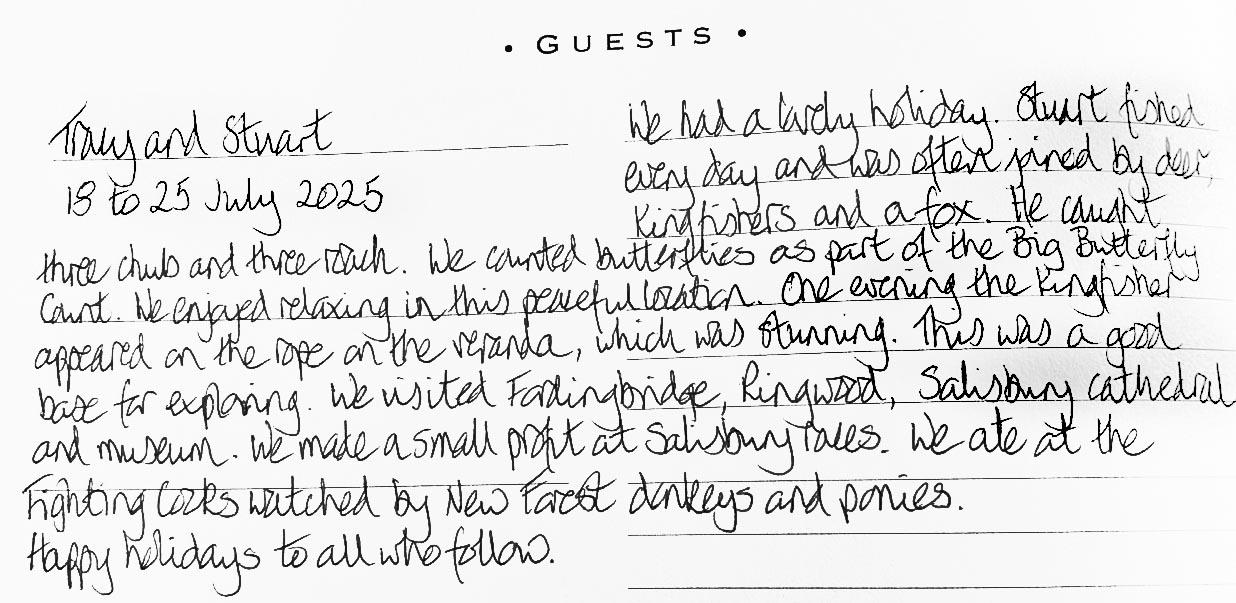 • GUESTS •
Tracy and Stuart
18 to 25 July 2025
We had a lovely holiday. Stuart fished
every day and was often joined by deer,
Kingfishers and a fox. He caught
three chub and three roach. We counted butterflies as part of the Big Butterfly
Count. We enjoyed relaxing in this peaceful location. One evening the Kingfisher
appeared on the rope on the veranda, which was stunning. This was a good
base for exploring. We visited Fordingbridge, Ringwood, Salisbury cathedral
and museum. We made a small profit at Salisbury races. We ate at the
Fighting Cocks watched by New Forest donkeys and ponies.
Happy holidays to all who follow.